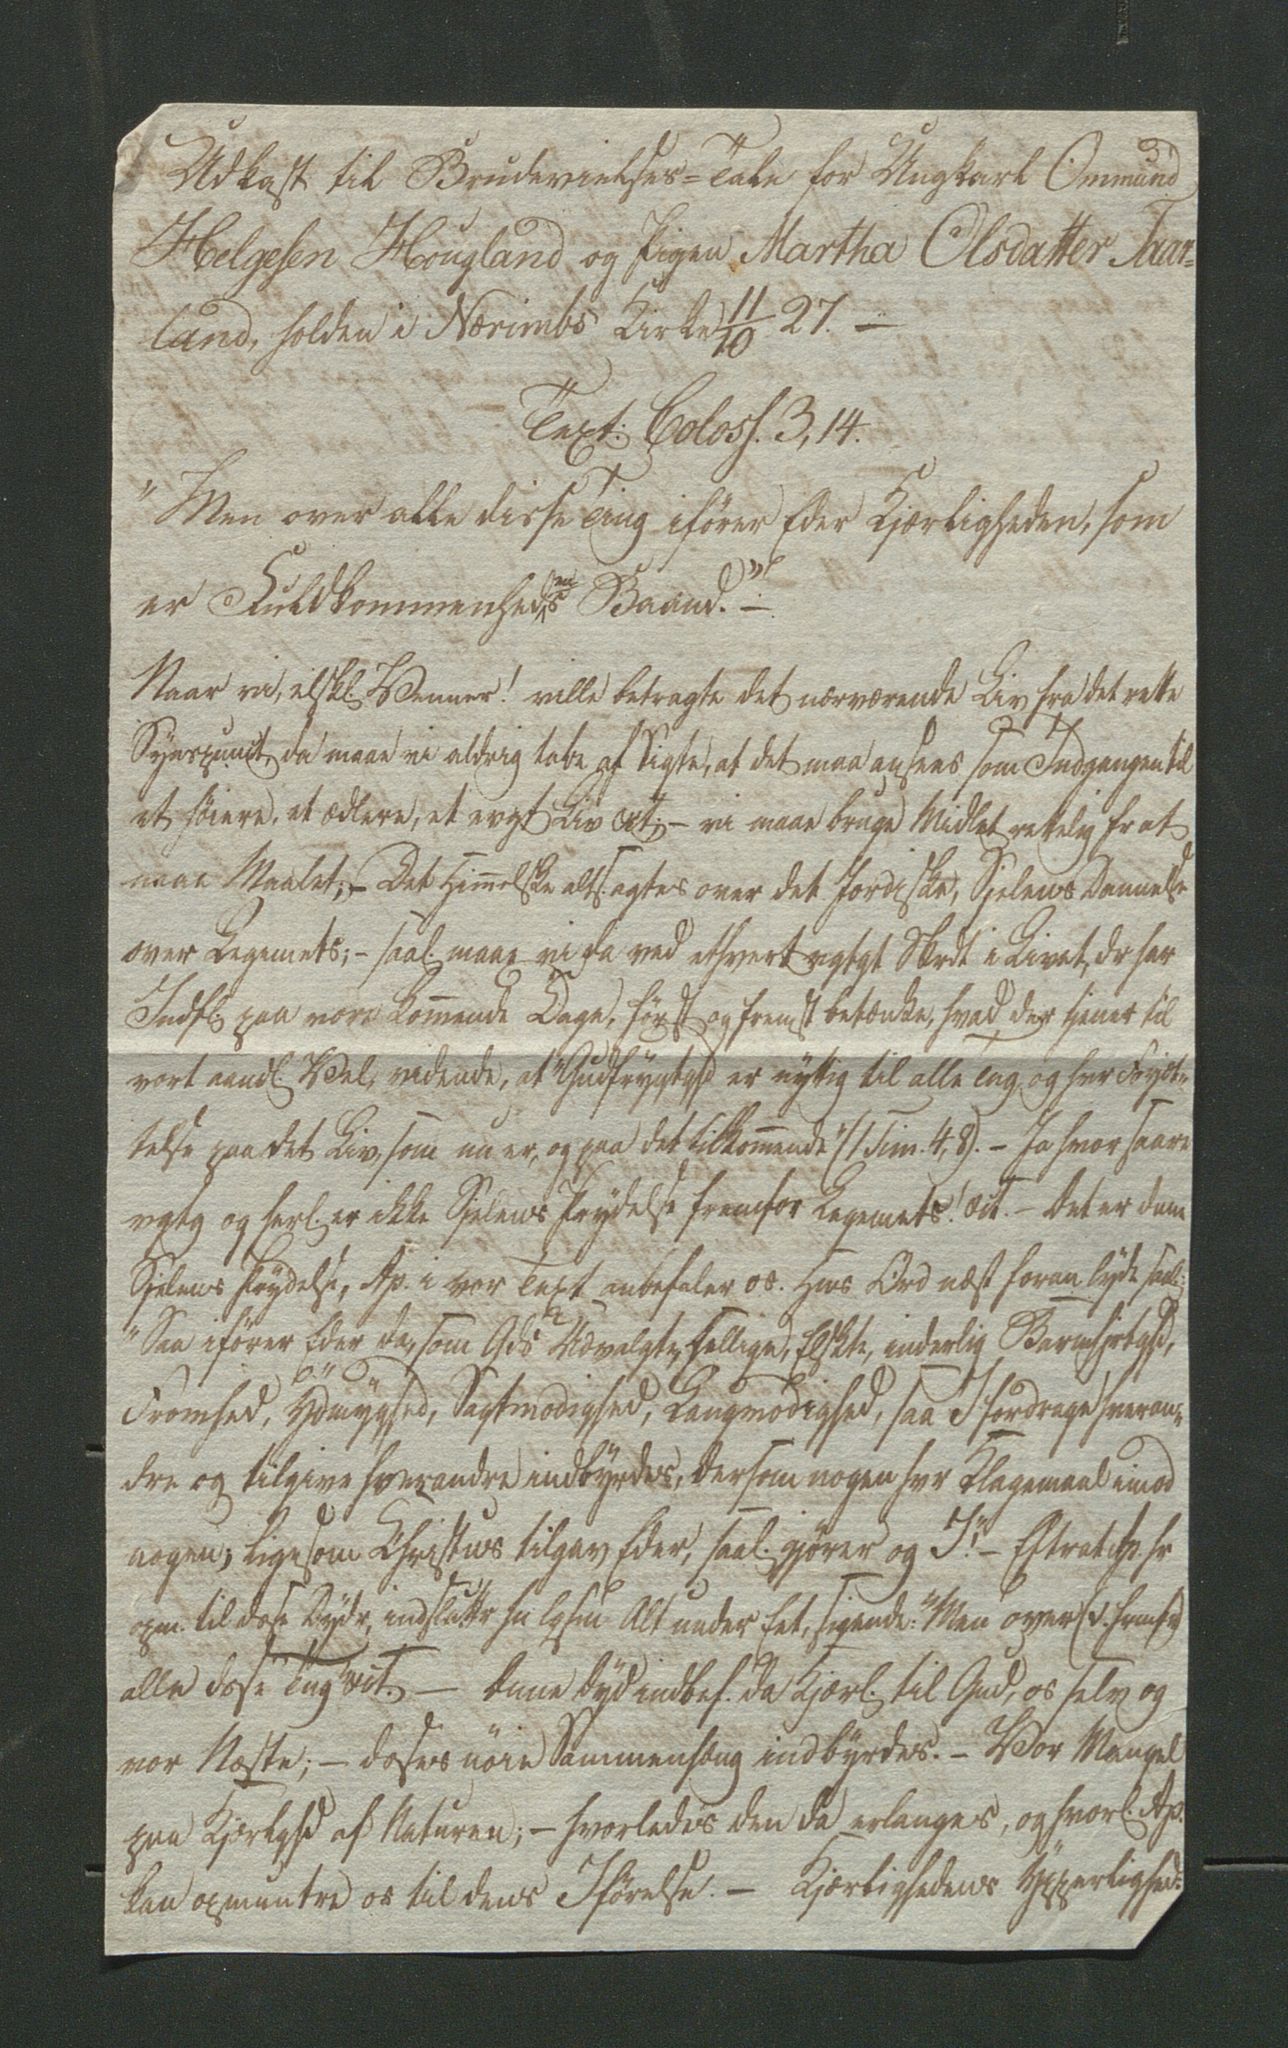 Udkast til Brudevielses=Tale for Ungkarl Ommund
Helgesen Hougland og Pigen Martha Olsdatter Aar=
land, holden i Nærimbs Kirke 11/10 27. —
Text: Coloss. 3, 14.
"Men over alle disse Ting ifører Eder Kjærligheden, som
er Fuldkommenhedens Baand." —
Naar vi, elskl. Venner! ville betragte det nærværende Liv fra det rette
Synspunct, da maae vi aldrig tabe af Sigte, at det maa ansees som Indgangen til
et høiere, et ædlere, et evgt Liv &ct; — vi maae bruge Midlet rettelig fr at
naae Maalet; — Det Himelske alts. agtes over det Jordiske, Sjelens Dannelse
over Legemets; — saal. maae vi da ved ethvert vgtgt Skrdt i Livet, dr har
Indfl. paa vore komende Dage, først og fremst betænke, hvad der tjener til
vort aandl. Vel, vidende, at "Gudfrygtghd er nyttig til alle Tng og hvr Forjæt=
telse paa det Liv, som nu er, og paa det tilkomende" (1 Tim. 4, 8). — Ja hvor saare
vgtg og herl. er ikke Sjelens Prydelse fremfor Legemets! &ct. — Det er denne
Sjelens Prydelse, Ap. i vor Text anbefaler os. Hans Ord næst foran lyde saal:
"Saa ifører Eder da, som Gds Udvalgte, hellige, Elskte, inderlig Barmhjrtghd,
Fromhed, Ydmyghed, Sagtmodighed, Langmodighed, saa I fordrage hveran=
dre og tilgive hverandre indbyrdes, dersom nogen hvr Klagemaal imod
nogen; ligesom Christus tilgav Eder, saal. gjører og I! — Eftrat hr
opm. til disse Dydr, indslutter hn Alt under Eet, sigende: "Men over (d. fremfor)
alle disse Tng &ct." — Denne Dyd indbef. da Kjærl. til Gud, os selv og
vor Næste; — disses nøie Sammenhæng indbyrdes. — Vor Mangel
paa Kjærlghd af Naturen; — hvorledes den da erlanges, og hvorl. Ap.
kan opmuntre os til dens Iførelse. — Kjærlighedens Ypperlighed: